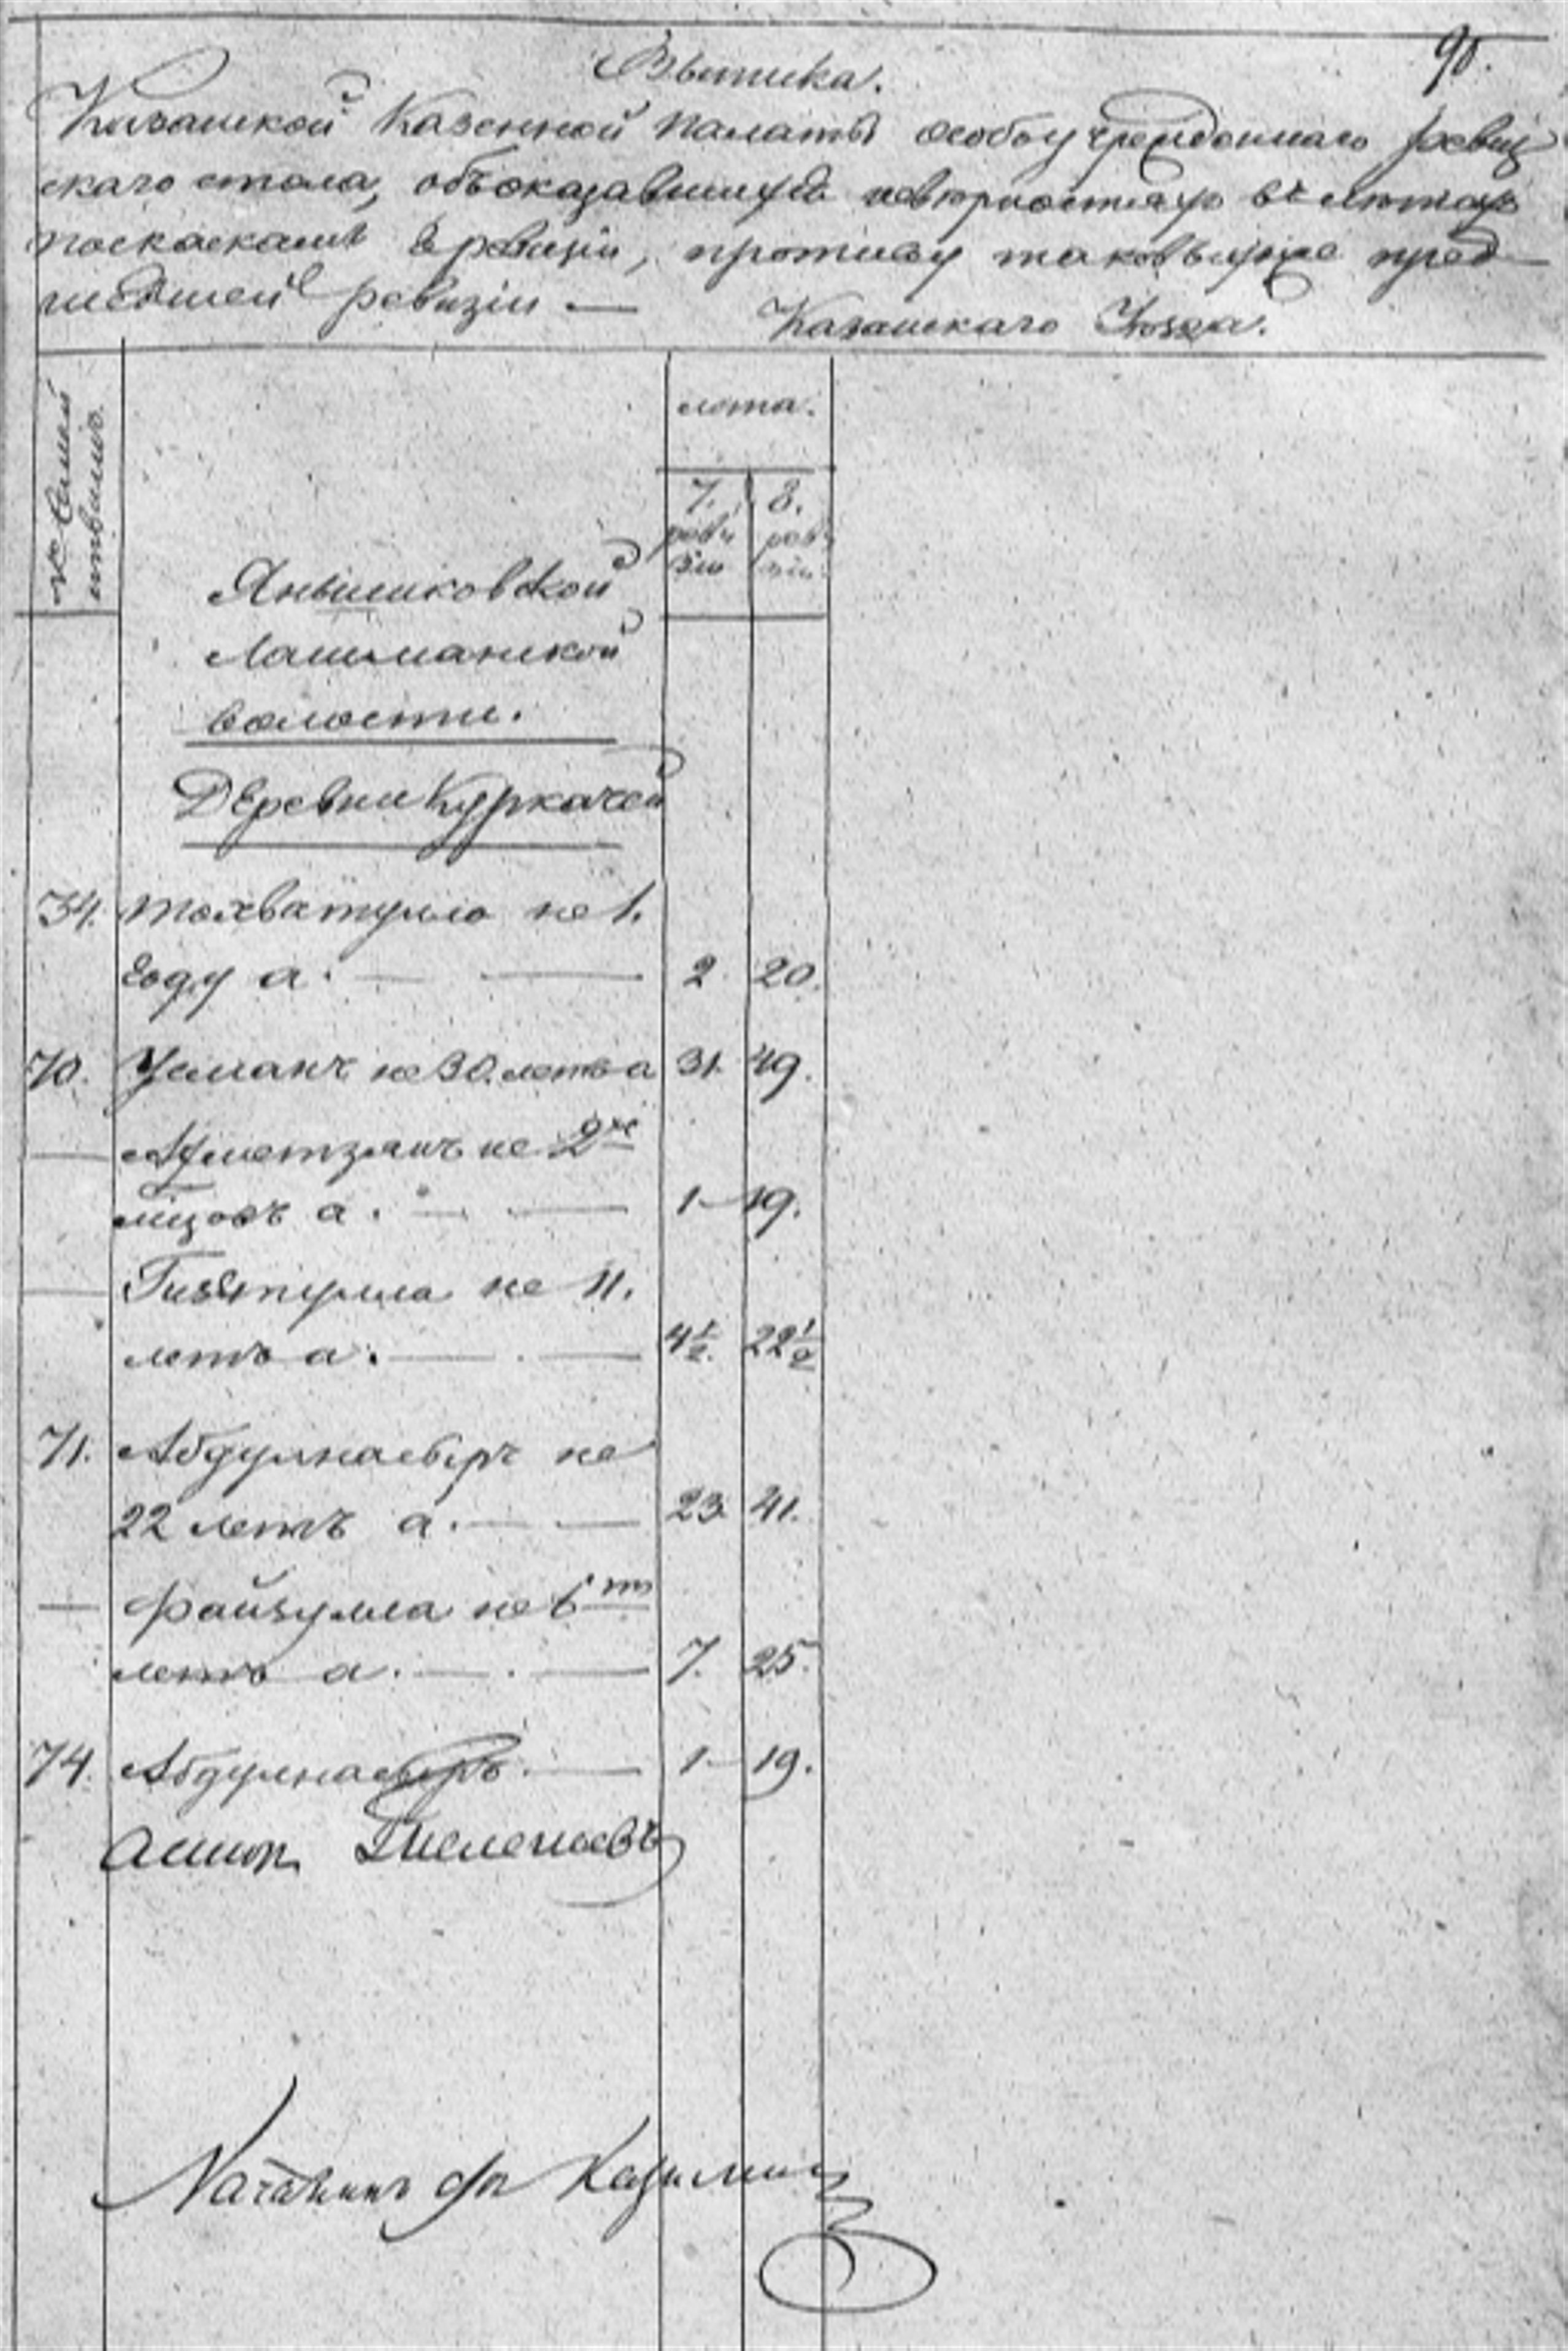 90.
Выписка.
Казанской Казенной палаты особо учрежденнаго ревиз
скаго стола, объ оказавшихся неверностяхъ въ летахъ
по скаскамъ 8 ревизіи, противу таковыхъже пред
шедшей ревизіи —
Казанскаго Уезда.
№ семей
лета.
7. реви зіи
8. реви зіи
Янышковской
Лашманской
волости.
Деревни Куркачей
34. Тохватулло не 1.
году а. — — 2. 20.
70. Усманъ не 30. летъ а 31. 49.
— Ахметзянъ не 2хъ
м͞цовъ а. — — 1— 19.
— Гизятулла не 11.
летъ а. — — 4½. 22½
71. Абдулнасыръ не
22 летъ а. — — 23. 41.
— Файзулла не 6ти
летъ а. — — 7. 25.
74. Абдулнасыръ. — 1— 19.